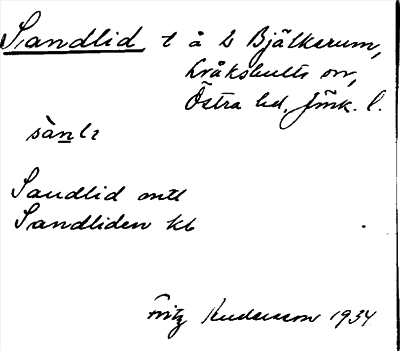 Sandlid t å L Bjälkerum,
Kråkshults sn,
Östra hd, Jönk. l.
sànlı
Sandlid ontl
Sandliden kb
Fritz Andersson 1934